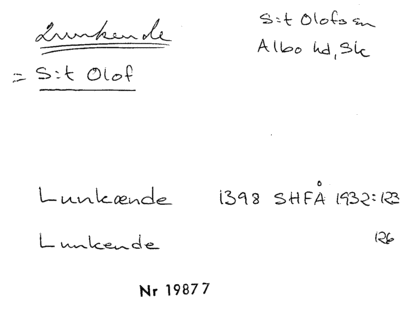 Lunkende
S:t Olofs sn
Albo hd, Sk
= S:t Olof
Lunkænde 1398 SHFÅ 1932:123
Lunkende 126
Nr 19877